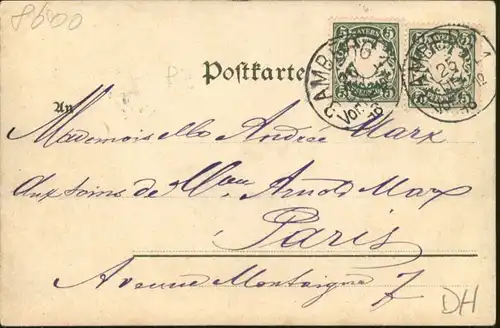 8600
5 BAYERN 5 5 BAYERN 5
BAMBERG
Postkarte
An
Mademoiselle Andrée Marx
Aux soins de Mme Arnold Marx
Paris
Avenue Montaigne 7
DH